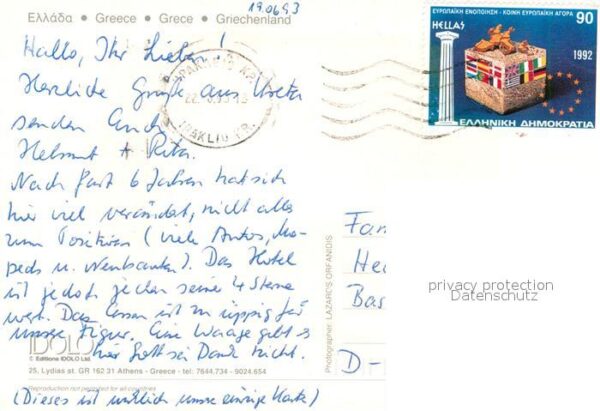 19.06.93
Ελλάδα • Greece • Grece • Griechenland
Hallo, Ihr Lieben!
Herzliche Grüße aus Kreta
senden Euch
Helmut + Rita.
Nach fast 6 Jahren hat sich
hier viel verändert, nicht alles
zum Positiven (viele Autos, Mo-
peds u. Neubauten). Das Hotel
ist jedoch jeden seiner 4 Sterne
wert. Das Essen ist zu üppig für
unsere Figur. Eine Waage gibt es
hier Gott sei Dank nicht.
IDOLO
© Editions IDOLO Ltd.
25, Lydias st. GR 162 31 Athens - Greece - tel: 7644.734 - 9024.654
Reproduction not permited for all countries
(Dieses ist wirklich unsere einzige Karte)
Photographer: LAZARIS ORFANIDIS
ΕΥΡΩΠΑΪΚΗ ΕΝΟΠΟΙΗΣΗ - ΚΟΙΝΗ ΕΥΡΩΠΑΪΚΗ ΑΓΟΡΑ
HELLAS
90
1992
ΕΛΛΗΝΙΚΗ ΔΗΜΟΚΡΑΤΙΑ
Fam
He
Bas
D-
privacy protection
Datenschutz